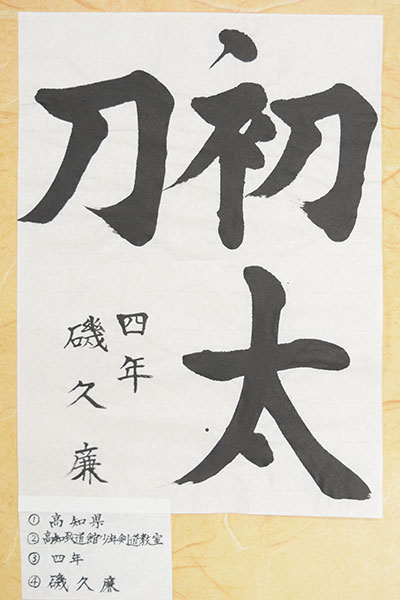 初太
刀
四年
磯久廉
① 高知県
② 高知武道館少年剣道教室
③ 四年
④ 磯久廉